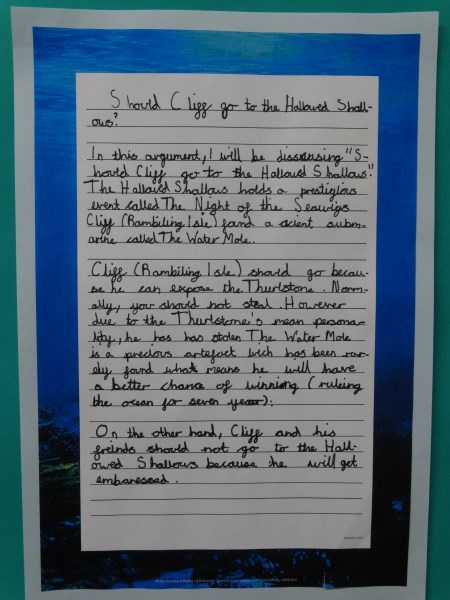 Should Cliff go to the Hallowed Shall-
ows?
In this argument, I will be dissscusing "S-
hould Cliff go to the Hallowed Shallows."
The Hallowed Shallows holds a prestigious
event called The Night of the Seawigs
Cliff (Rambiling Isle) found a acient subm-
arine called The Water Mole.
Cliff (Rambiling Isle) should go becau-
se he can expose the Thurlstone. Norm-
ally, you should not steal. However
due to the Thurlstone's mean persona-
lity, he has has stolen The Water Mole
is a precious artefact wich has been rar-
ely found what means he will have
a better chance of winning (ruleing
the ocean for seven years).
On the other hand, Cliff and his
freinds should not go to the Hall-
owed Shallows because he will get
embaressed.